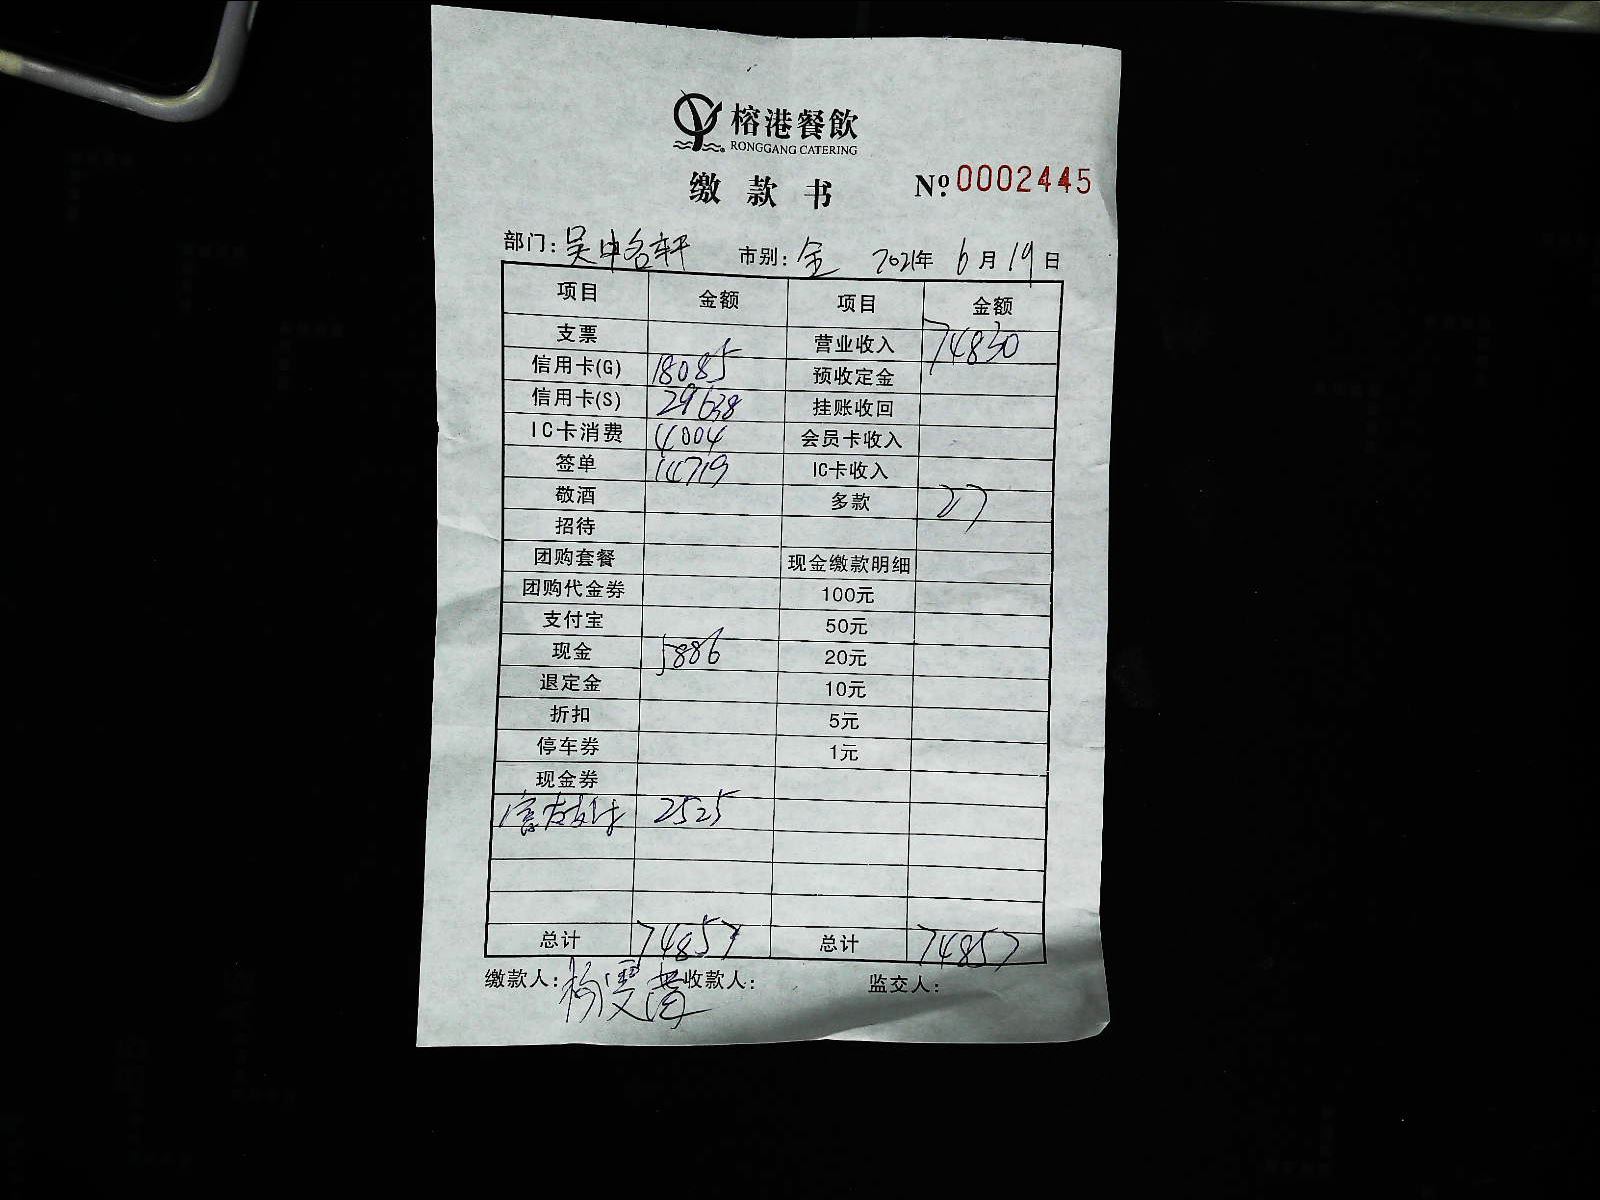 榕港餐飲
RONGGANG CATERING
缴款书 Nº 0002445
部门: 吴中名轩 市别: 全 2021年 6月19日
项目 金额 项目 金额
支票 营业收入 74830
信用卡(G) 18085 预收定金
信用卡(S) 29638 挂账收回
IC卡消费 4004 会员卡收入
签单 14719 IC卡收入
敬酒 多款 27
招待
团购套餐 现金缴款明细
团购代金券 100元
支付宝 50元
现金 5886 20元
退定金 10元
折扣 5元
停车券 1元
现金券
2525
总计 74857 总计 74857
缴款人: 杨雯 收款人: 监交人: